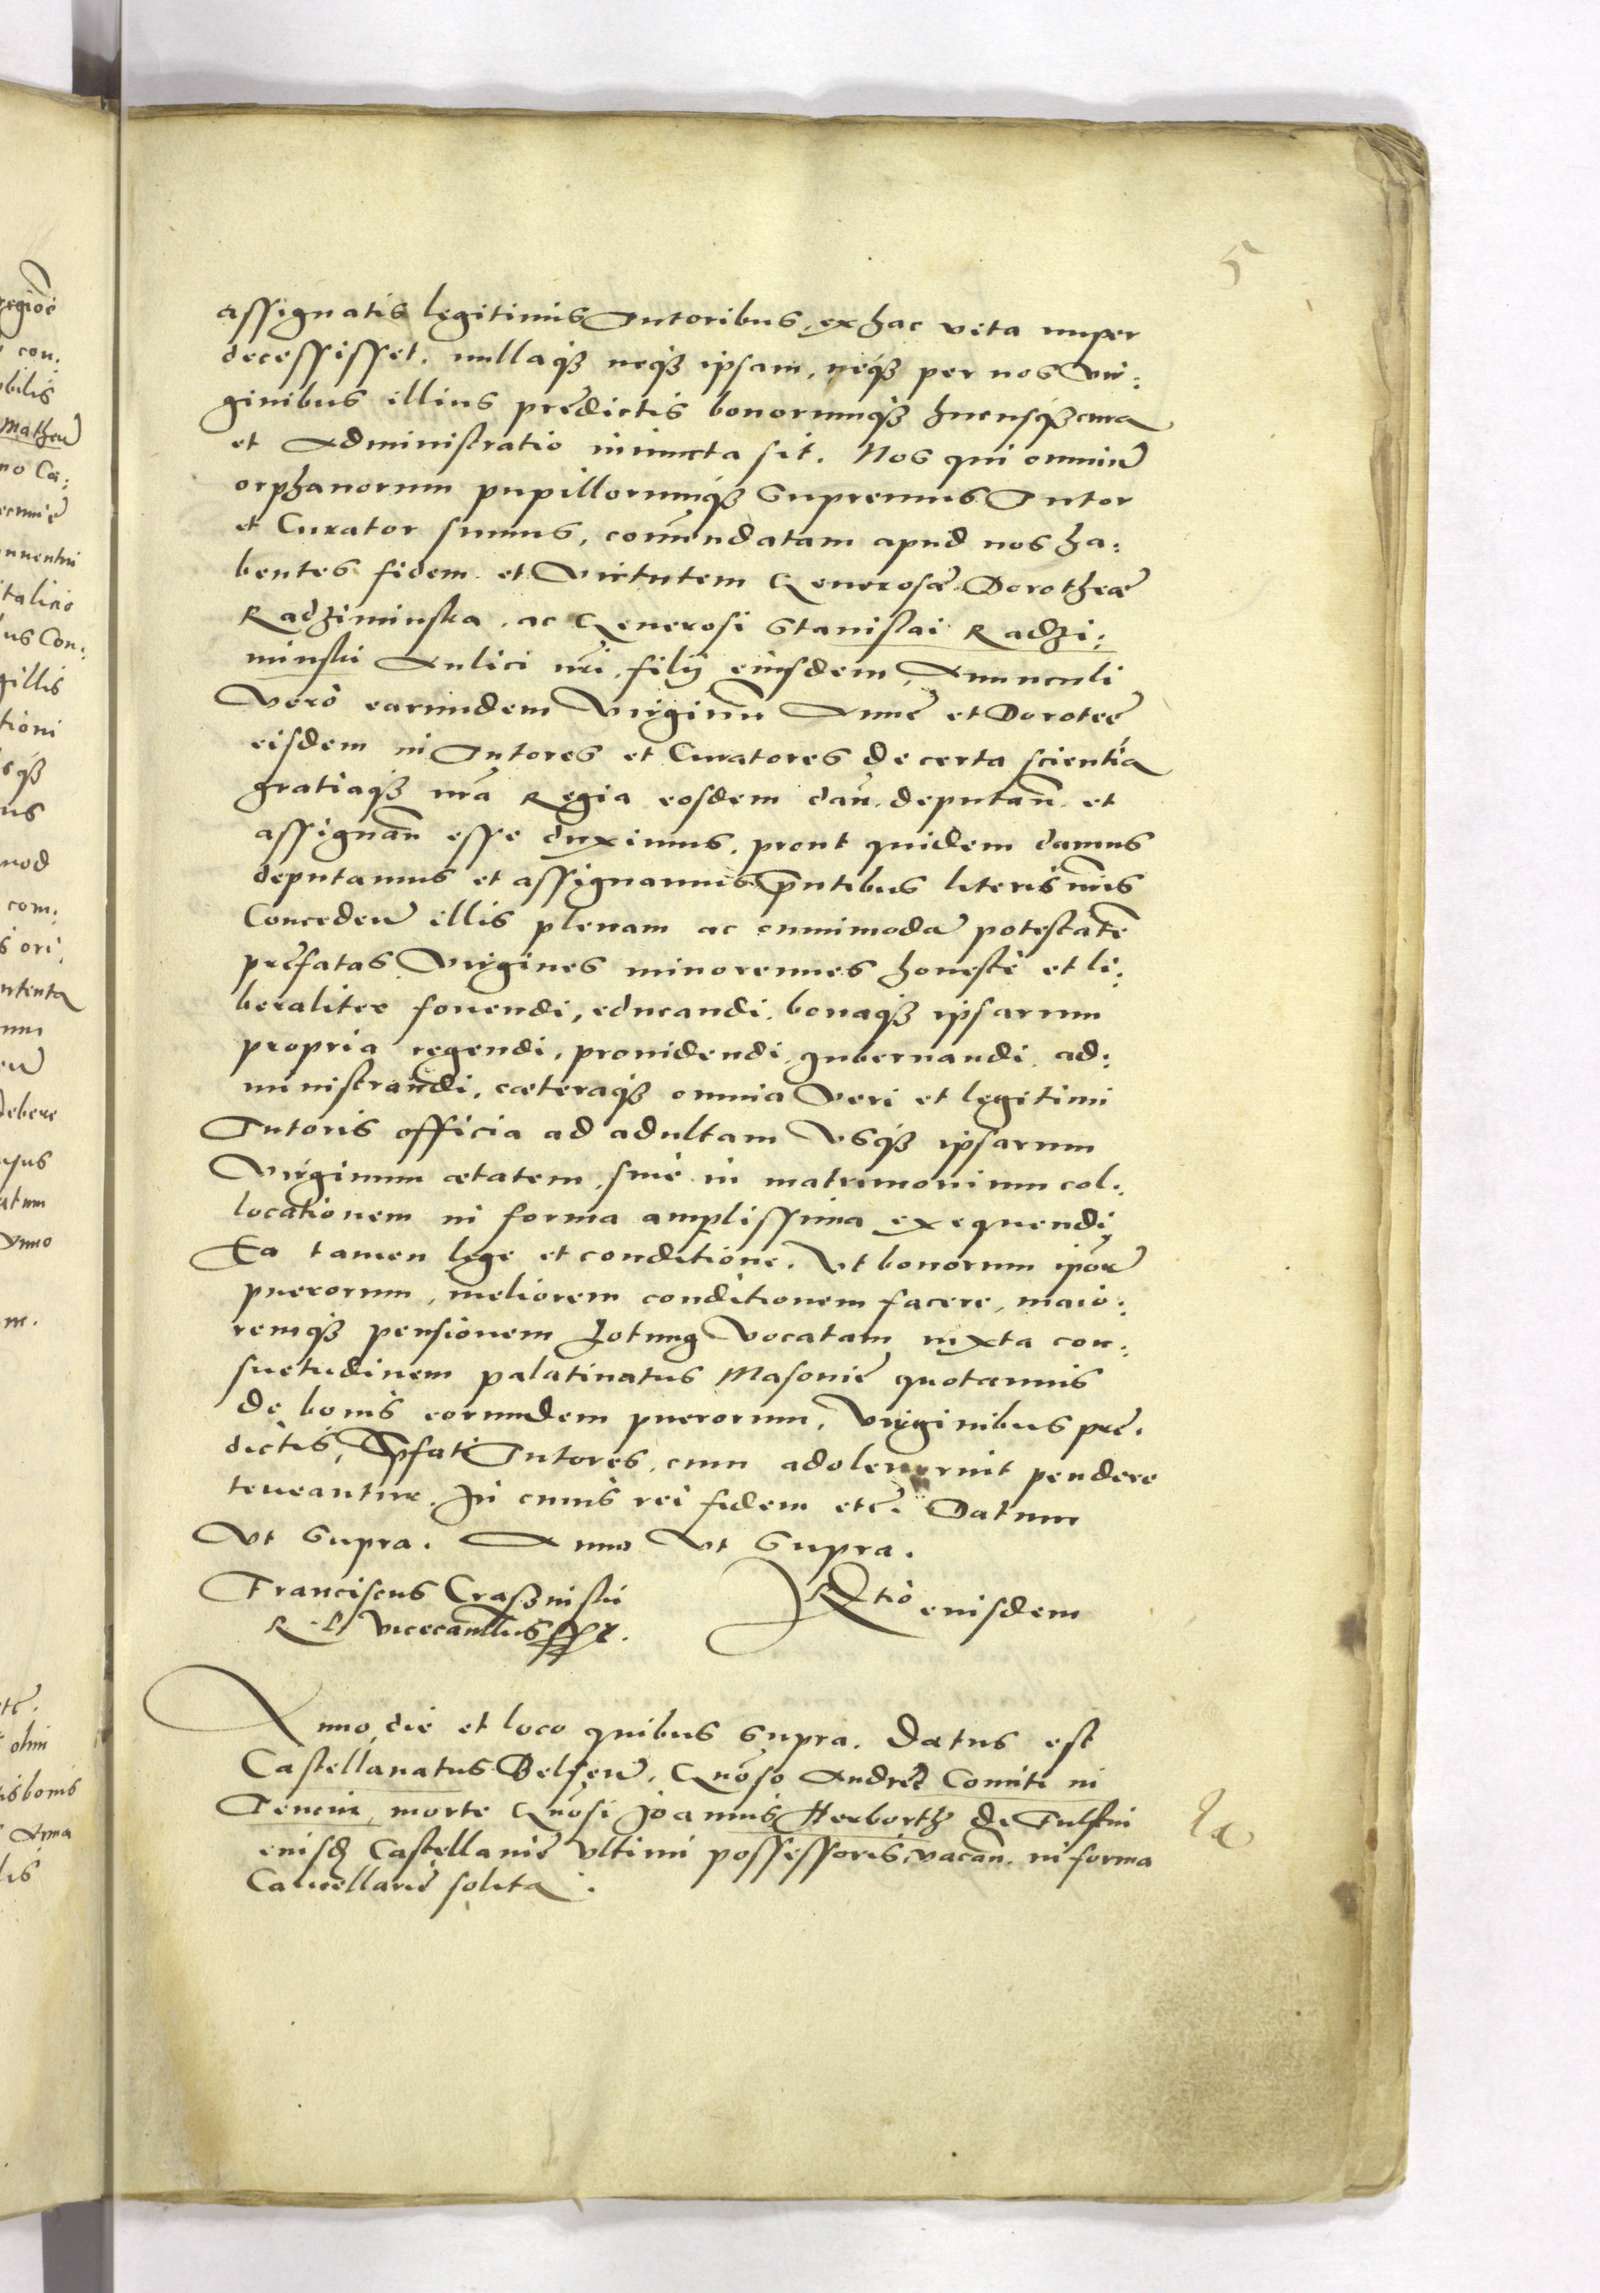 5
assignatis legitimis Tutoribus, ex hac vita nuper
decessisset. nullaqz neqz ipsam, neqz per nos vir:
ginibus illius prędictis bonorumqz hucusqz cura
et Administratio iniuncta sit. Nos qui omniũ
orphanorum pupillorumqz Supremus Tutor
et Curator sumus, comẽndatam apud nos ha:
bentes fidem et Virtutem Generosæ Dorotheæ
Radziminska, ac Generosi Stanislai Radzi:
minskii Aulici nr̃i, filij eiusdem, Auunculi
Verò earundem Virginũ Annę et Doroteę
eisdem in Tutores et Curatores de certa scientia
gratiaqz nr̃a Regia eosdem dañ. deputañ. et
assignañ esse duximus, prout quidem damus
deputamus et assignamus pñtibus literis nr̃is
Concedeñ illis plenam ac omnimodã potestatẽ
pręfatas Virgines minorennes honestè et li:
beraliter fouendi, educandi, bonaqz ipsarum
propria regendi, prouidendi, gubernandi, ad:
ministrandi, cæteraqz omnia Veri et legitimi
Tutoris officia ad adultam Vsqz ipsarum
Virginum ætatem, siue in matrimonium col:
locationem in forma amplissima exequendi,
Ea tamen lege et conditione, Vt bonorum ipõr
puerorum, meliorem conditionem facere, maio:
remqz pensionem Zotung Vocatam iuxta con:
suetudinem palatinatus Masoniẽ quotannis
de bonis eorumdem puerorum, Virginibus prę:
dictis, pfati Tutores, cum adoleuerint pendere
teneantur. In cuius rei fidem etc̃. Datum
Vt Supra. Anno Vt Supra.
Franciscus Craszinskii
R. P. Vicecancllus sst.
Rtio eiusdem
Anno, die et loco quibus supra. Datus est
Castellanatus Belseñ. Gñoso Andreę Comiti in
Tencin, morte Gñosi Joannis Herborth de Fulstin
eiusd Castellaniẽ Vltimi possessoris, vacañ. in forma
Cancellariẽ solita.